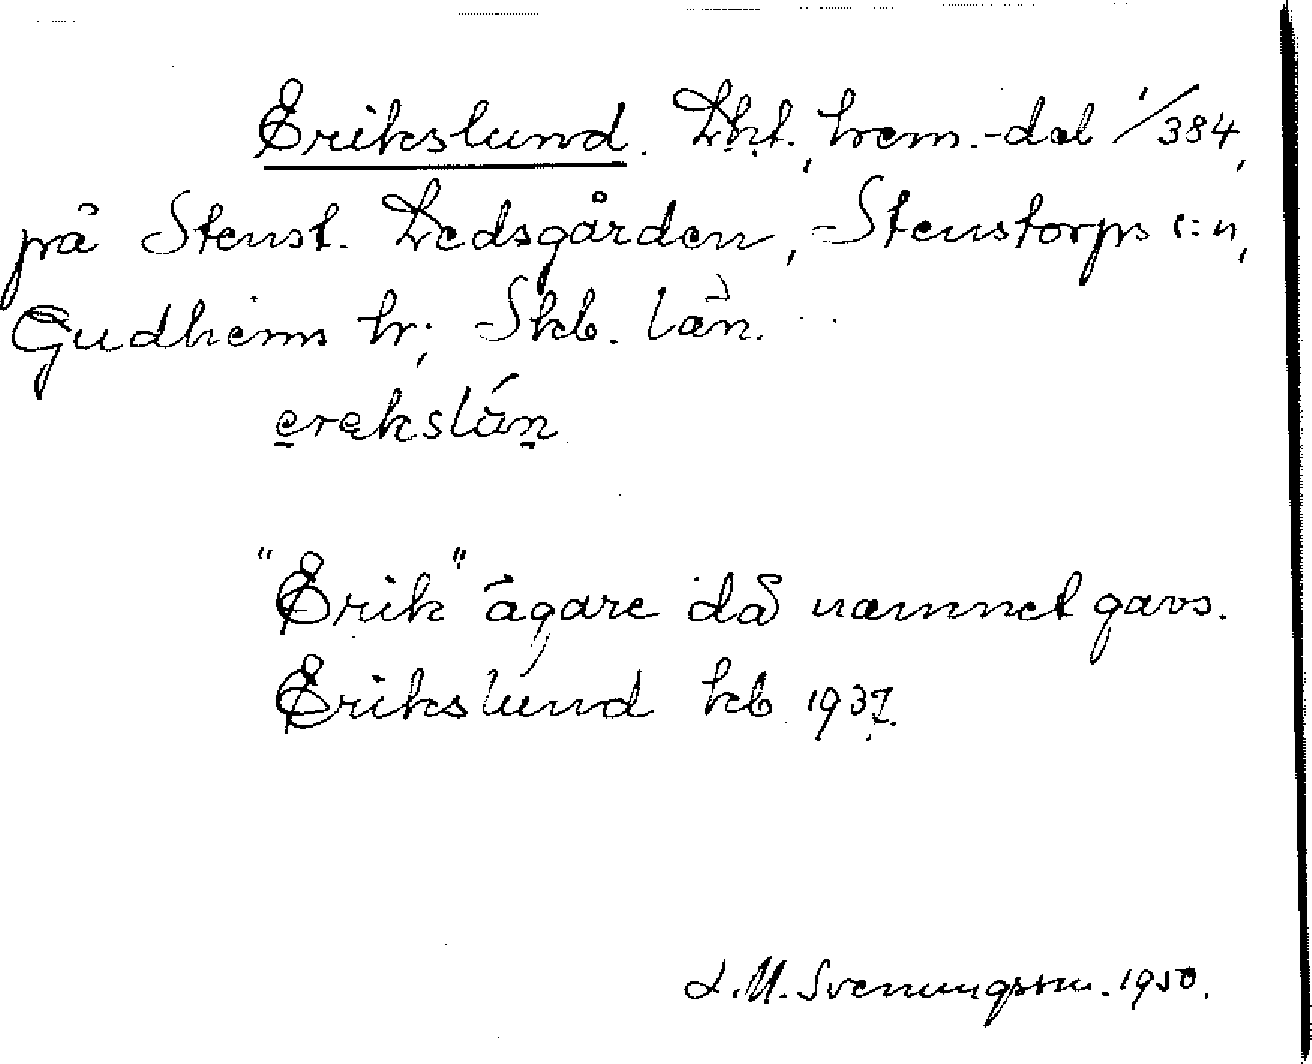 Erikslund. Lht., hem.-del 1/384,
på Stenst. Ledsgården, Stenstorps s:n,
Gudhems hr; Skb. län.
erekslún
"Erik" ägare då namnet gavs.
Erikslund kb 1937.
L.M. Svenungsson. 1950.